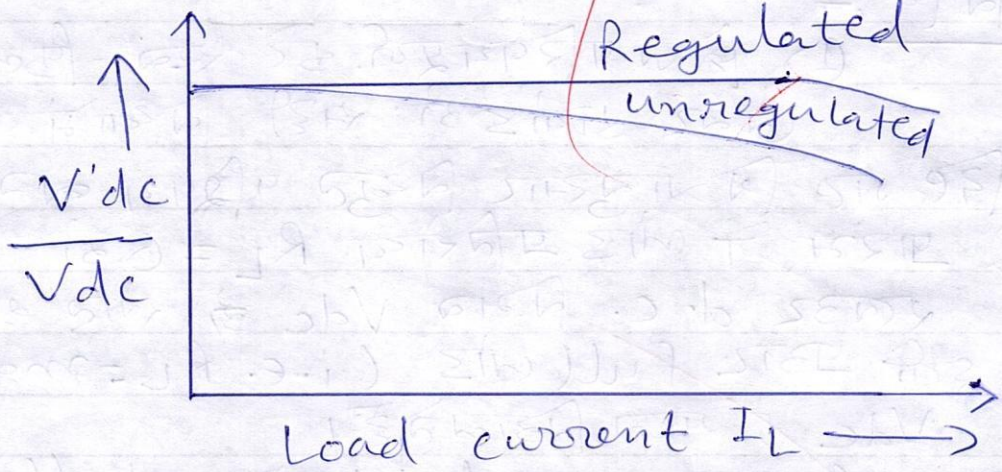 Regulated
unregulated
V'dc
Vdc
Load current IL